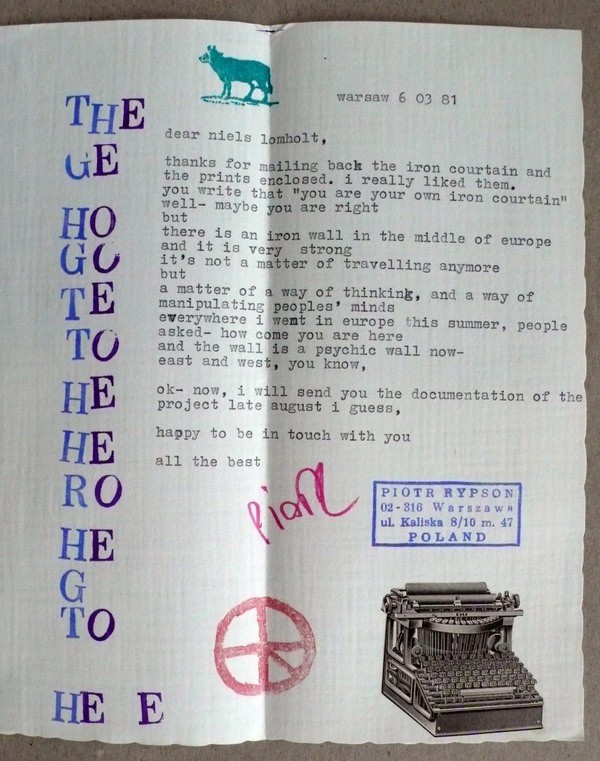 warsaw 6 03 81
dear niels lomholt,
thanks for mailing back the iron courtain and
the prints enclosed. i really liked them.
you write that "you are your own iron courtain"
well- maybe you are right
but
there is an iron wall in the middle of europe
and it is very strong
it's not a matter of travelling anymore
but
a matter of a way of thinking, and a way of
manipulating peoples' minds
everywhere i went in europe this summer, people
asked- how come you are here
and the wall is a psychic wall now-
east and west, you know,
ok- now, i will send you the documentation of the
project late august i guess,
happy to be in touch with you
all the best
piotr
PIOTR RYPSON
02-316 Warszawa
ul. Kaliska 8/10 m. 47
POLAND
THE
GE
HO
GO
TE
TO
HE
HE
RO
HE
G
TO
HE E